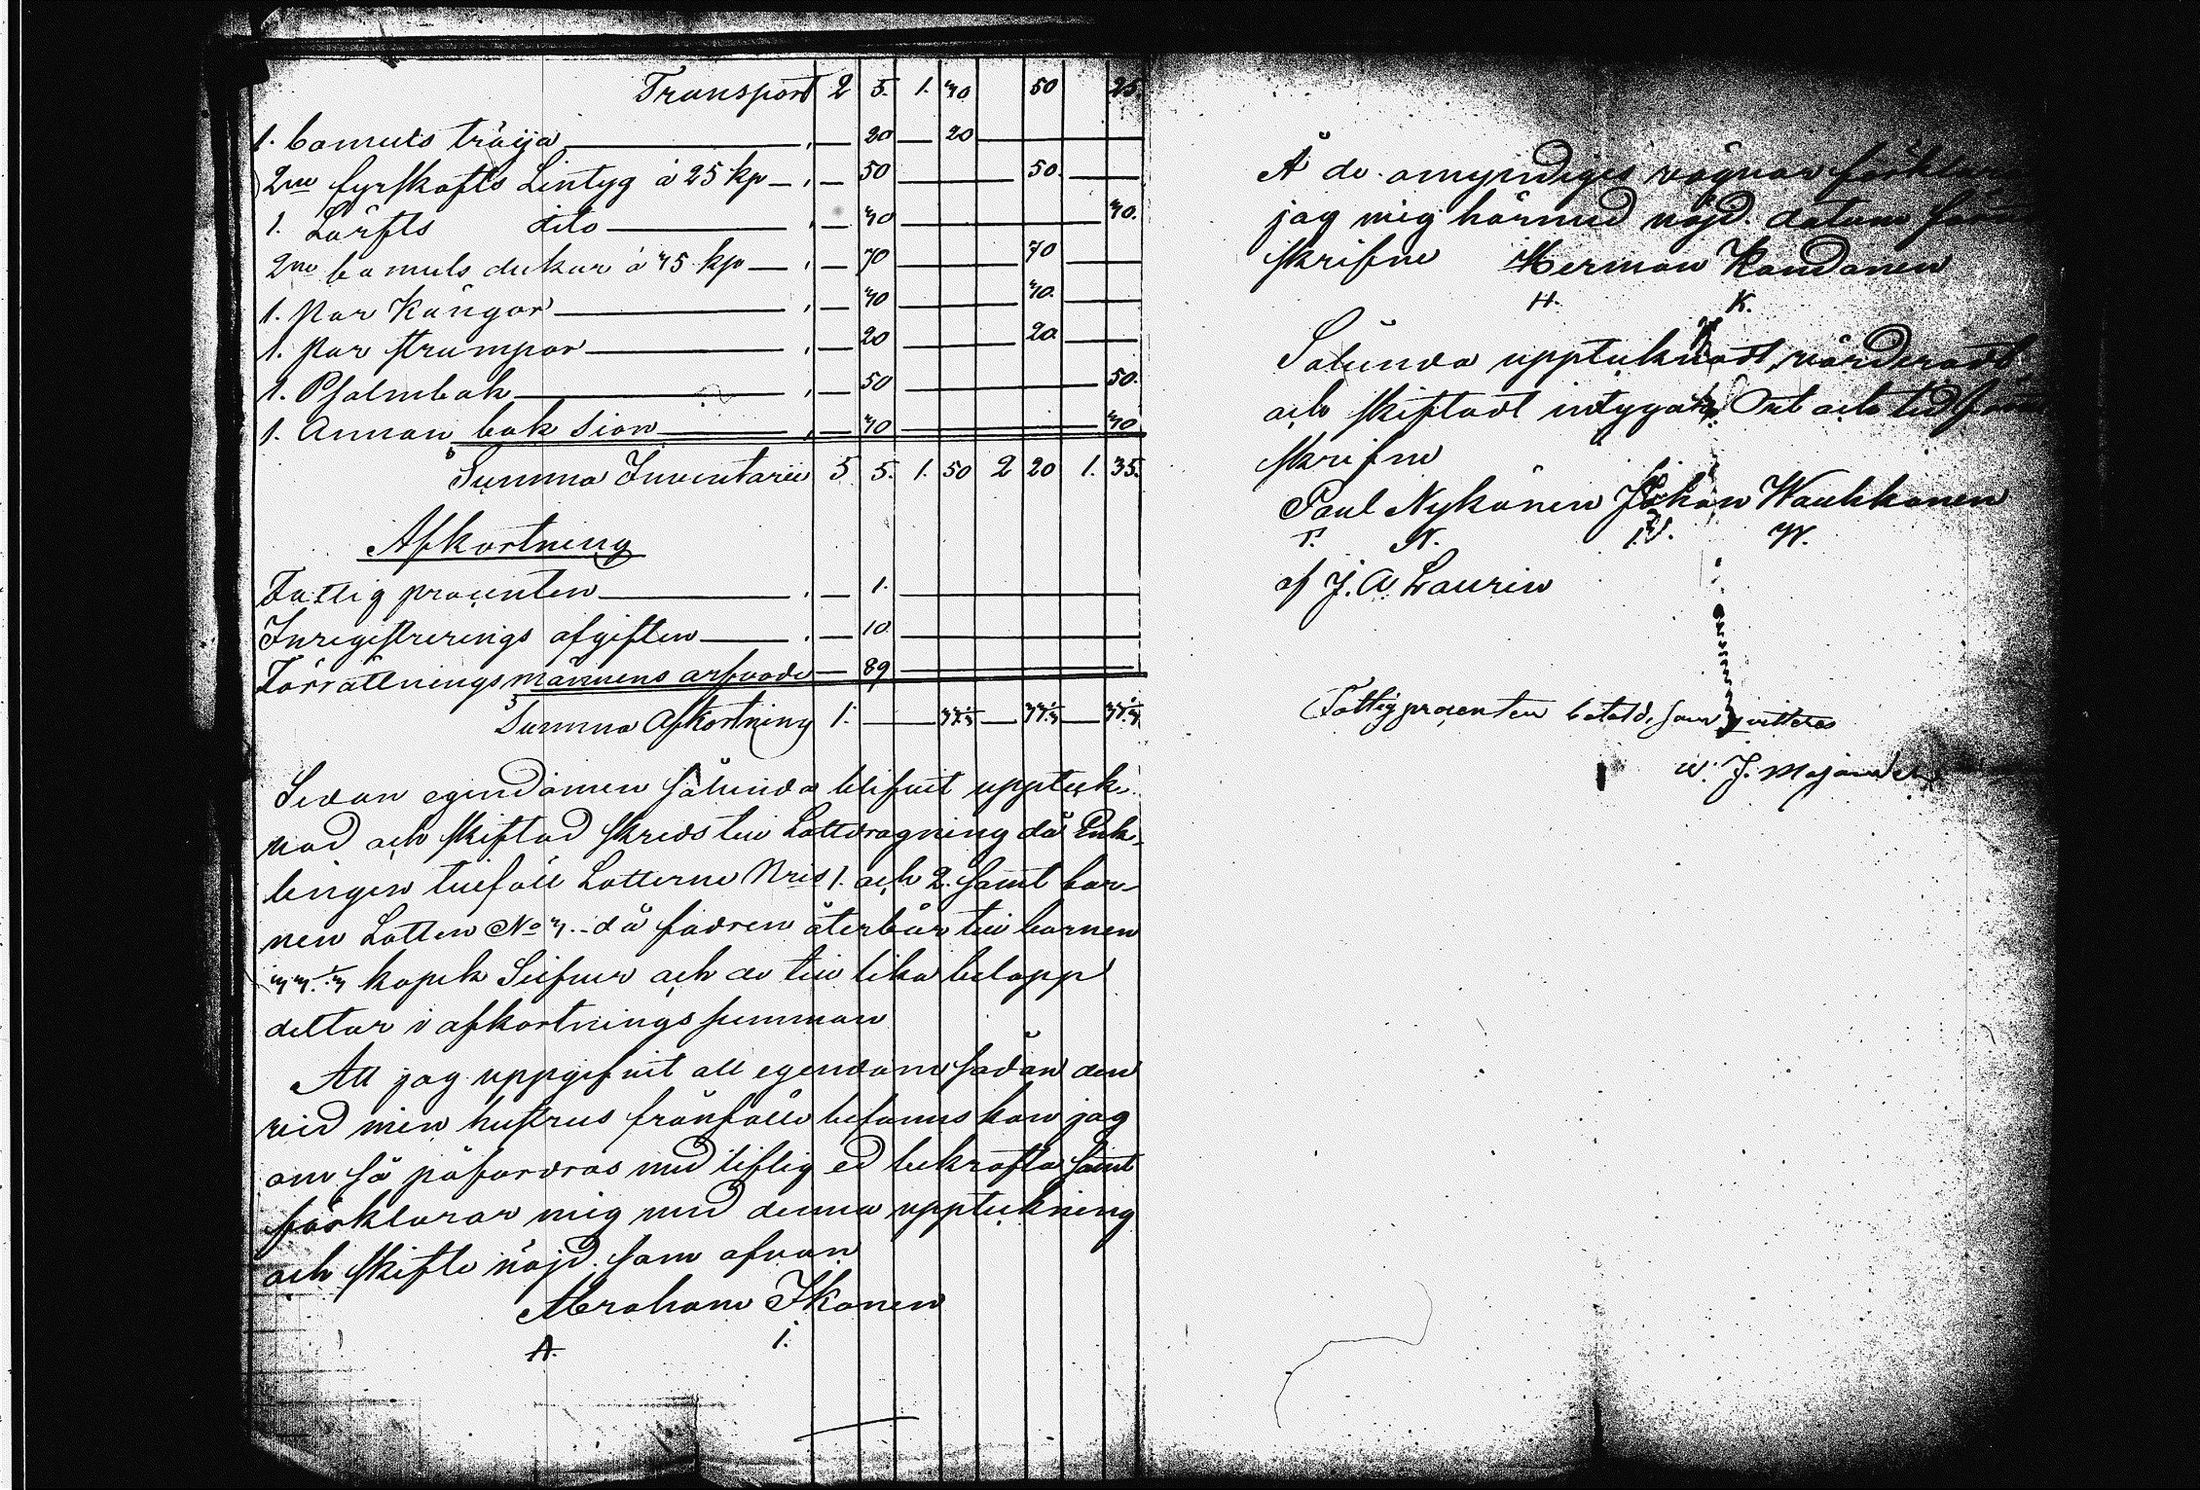 Transport 2 5. 1. 30 50 25.
1. bomuls tröija 20 20
2ne fyrskafts Lintyg á 25 kp 50 50.
1. Lärfts dito 30 30.
2ne bomuls dukar á 35 kp 70 70
1. Par Kängor 30 30.
1. Par strumpor 20 20
1. Psalmbok 50 50.
1. Annan bok Sion 30 30
Summa Inventarii 5 5. 1. 50 2 20 1. 35.
Afkortning
Fattig procenten 1.
Inregistrerings afgiften 10
Förrättningsmännens arfvode 89
Summa Afkortning 1. 33 1/3 33 1/3 33 1/3
Sedan egendomen sålunda blifvit uppteck-
nad och skiftad skreds till Lottdragning då Enk-
lingen tillföll Lotterne Nris 1. och 2. samt bar-
nen Lotten No 3. då fadren återbär till barnen
33 1/3 kopek Silfver och de till lika belopp
deltar i afkortnings summan
Att jag uppgifvit all egendom sådan den
vid min hustrus frånfälle befanns kan jag
om så påfordras med liflig ed bekräfta samt
förklarar mig med denna uppteckning
och skifte nöjd. som ofvan
Abraham Ikonen
A. I.
Å de omyndiges vägnar
jag mig härmed nöjd. datum
skrifne Herman Kandanen
H. K.
Sålunda upptecknadt, värderadt
och skiftadt intyga Ort och tid
skrifne
Paul Nykänen Johan Waukkonen
P. N. J. W.
af J. A. Laurin
Fattigprocenten betald, som qvitteras
W. J.